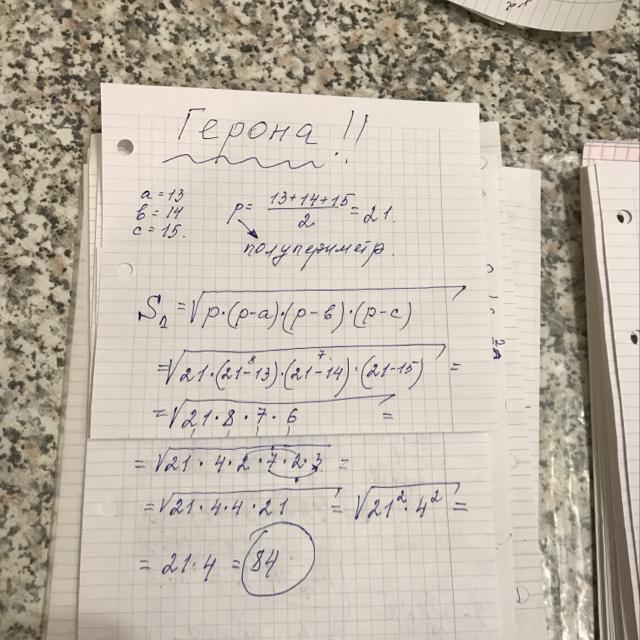 Герона !!
a = 13
в = 14
c = 15.
p = (13+14+15)/2 = 21.
полупериметр.
S△ = √p·(p-a)·(p-в)·(p-c)
= √21·(21-13)·(21-14)·(21-15) =
8 7
= √21·8·7·6 =
= √21·4·2·7·2·3 =
= √21·4·4·21 = √21²·4² =
= 21·4 = 84